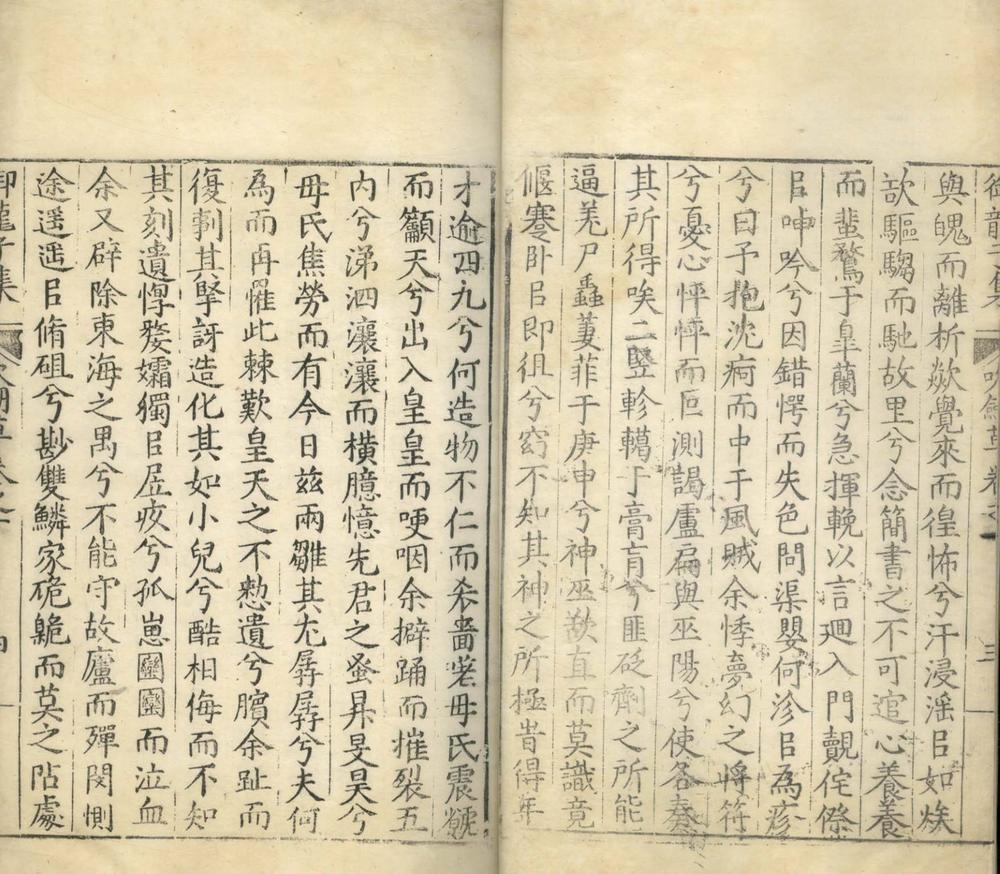 與魄而離析欻覺來而徨怖兮汗浸滛㠯如焌
欯驅騶而馳故里兮念簡書之不可逭心養養
而蜚鶩于皐蘭兮急揮輓以言迴入門覿侘傺
㠯呻吟兮因錯愕而失色問渠嬰何沴㠯為疹
兮曰予抱沈痾而中于風賊余悸夢幻之將符
兮憂心怦怦而叵測謁盧扁與巫陽兮使各奏
其所得唉二竪軫轕于膏肓兮匪砭劑之所能
逼羌尸蟲萋菲于庚申兮神巫欷直而莫識竟
偃蹇卧㠯即徂兮竊不知其神之所極昔得年
才逾四九兮何造物不仁而忝嗇老母氏震虩
而籲天兮出入皇皇而哽咽余擗踊而摧裂五
内兮涕泗瀼瀼而橫臆憶先君之蚤昇旻昊兮
毋氏焦勞而有今日兹兩雛其尢孱孱兮夫何
為而再罹此棘歎皇天之不憗遺兮臏余趾而
復剚其擊訝造化其如小兒兮酷相侮而不知
其刻遺惸嫠孀獨㠯屋疚兮孤嵬圞圞而泣血
余又辟除東海之禺兮不能守故廬而殫閔惻
途遥遥㠯脩砠兮尠雙鱗家硊䠥而莫之阽處